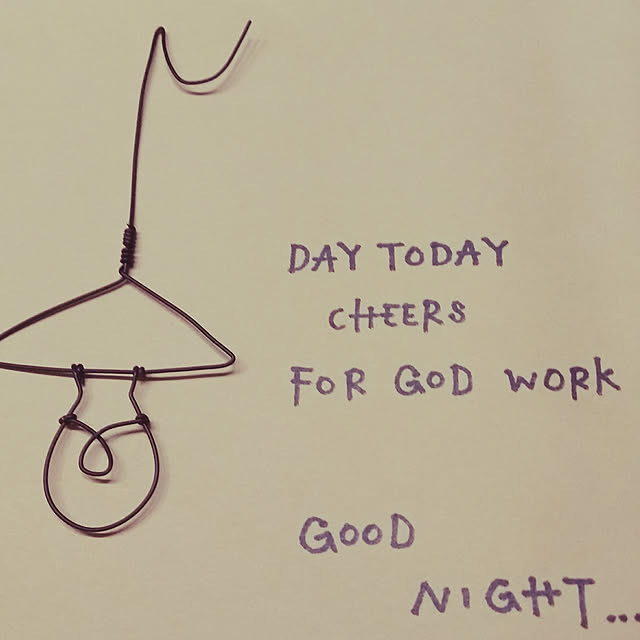 DAY TODAY
CHEERS
FOR GOD WORK
GOOD
NIGHT...